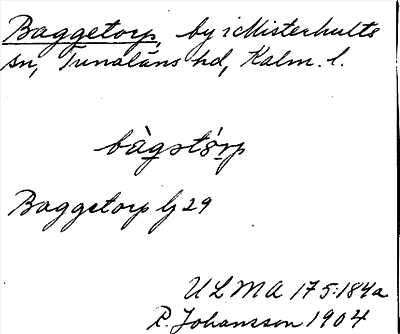 Baggetorp, by i Misterhults
sn, Tunaläns hd, Kalm. l.
bàgstó̀rp
Baggetorp lj 29
ULMA 175:184a
R. Johansson 1904